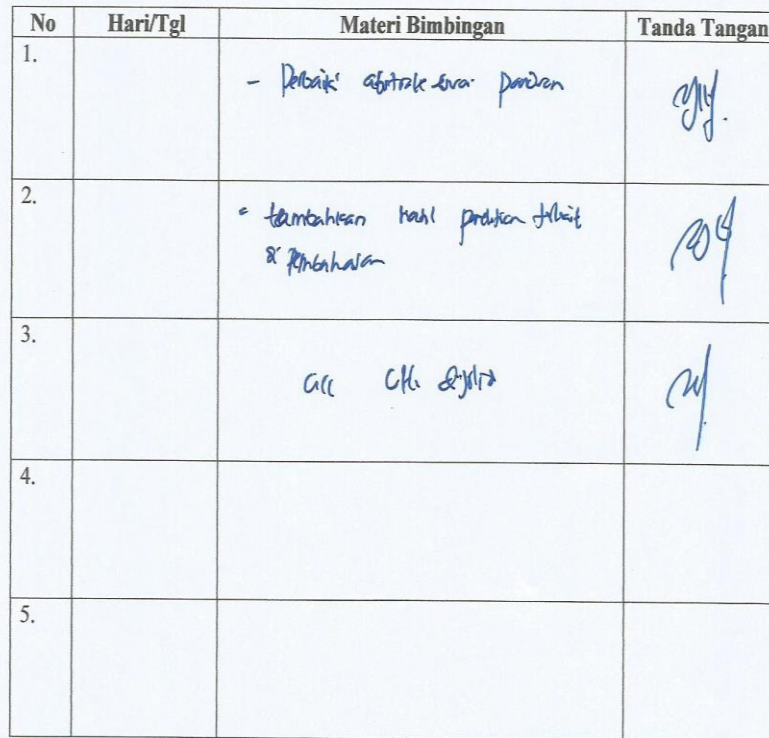 No Hari/Tgl Materi Bimbingan Tanda Tangan
1.
- Perbaiki abstrak sesuai panduan
2.
- tambahkan hasil penelitian terkait
di pembahasan
3.
acc
4.
5.